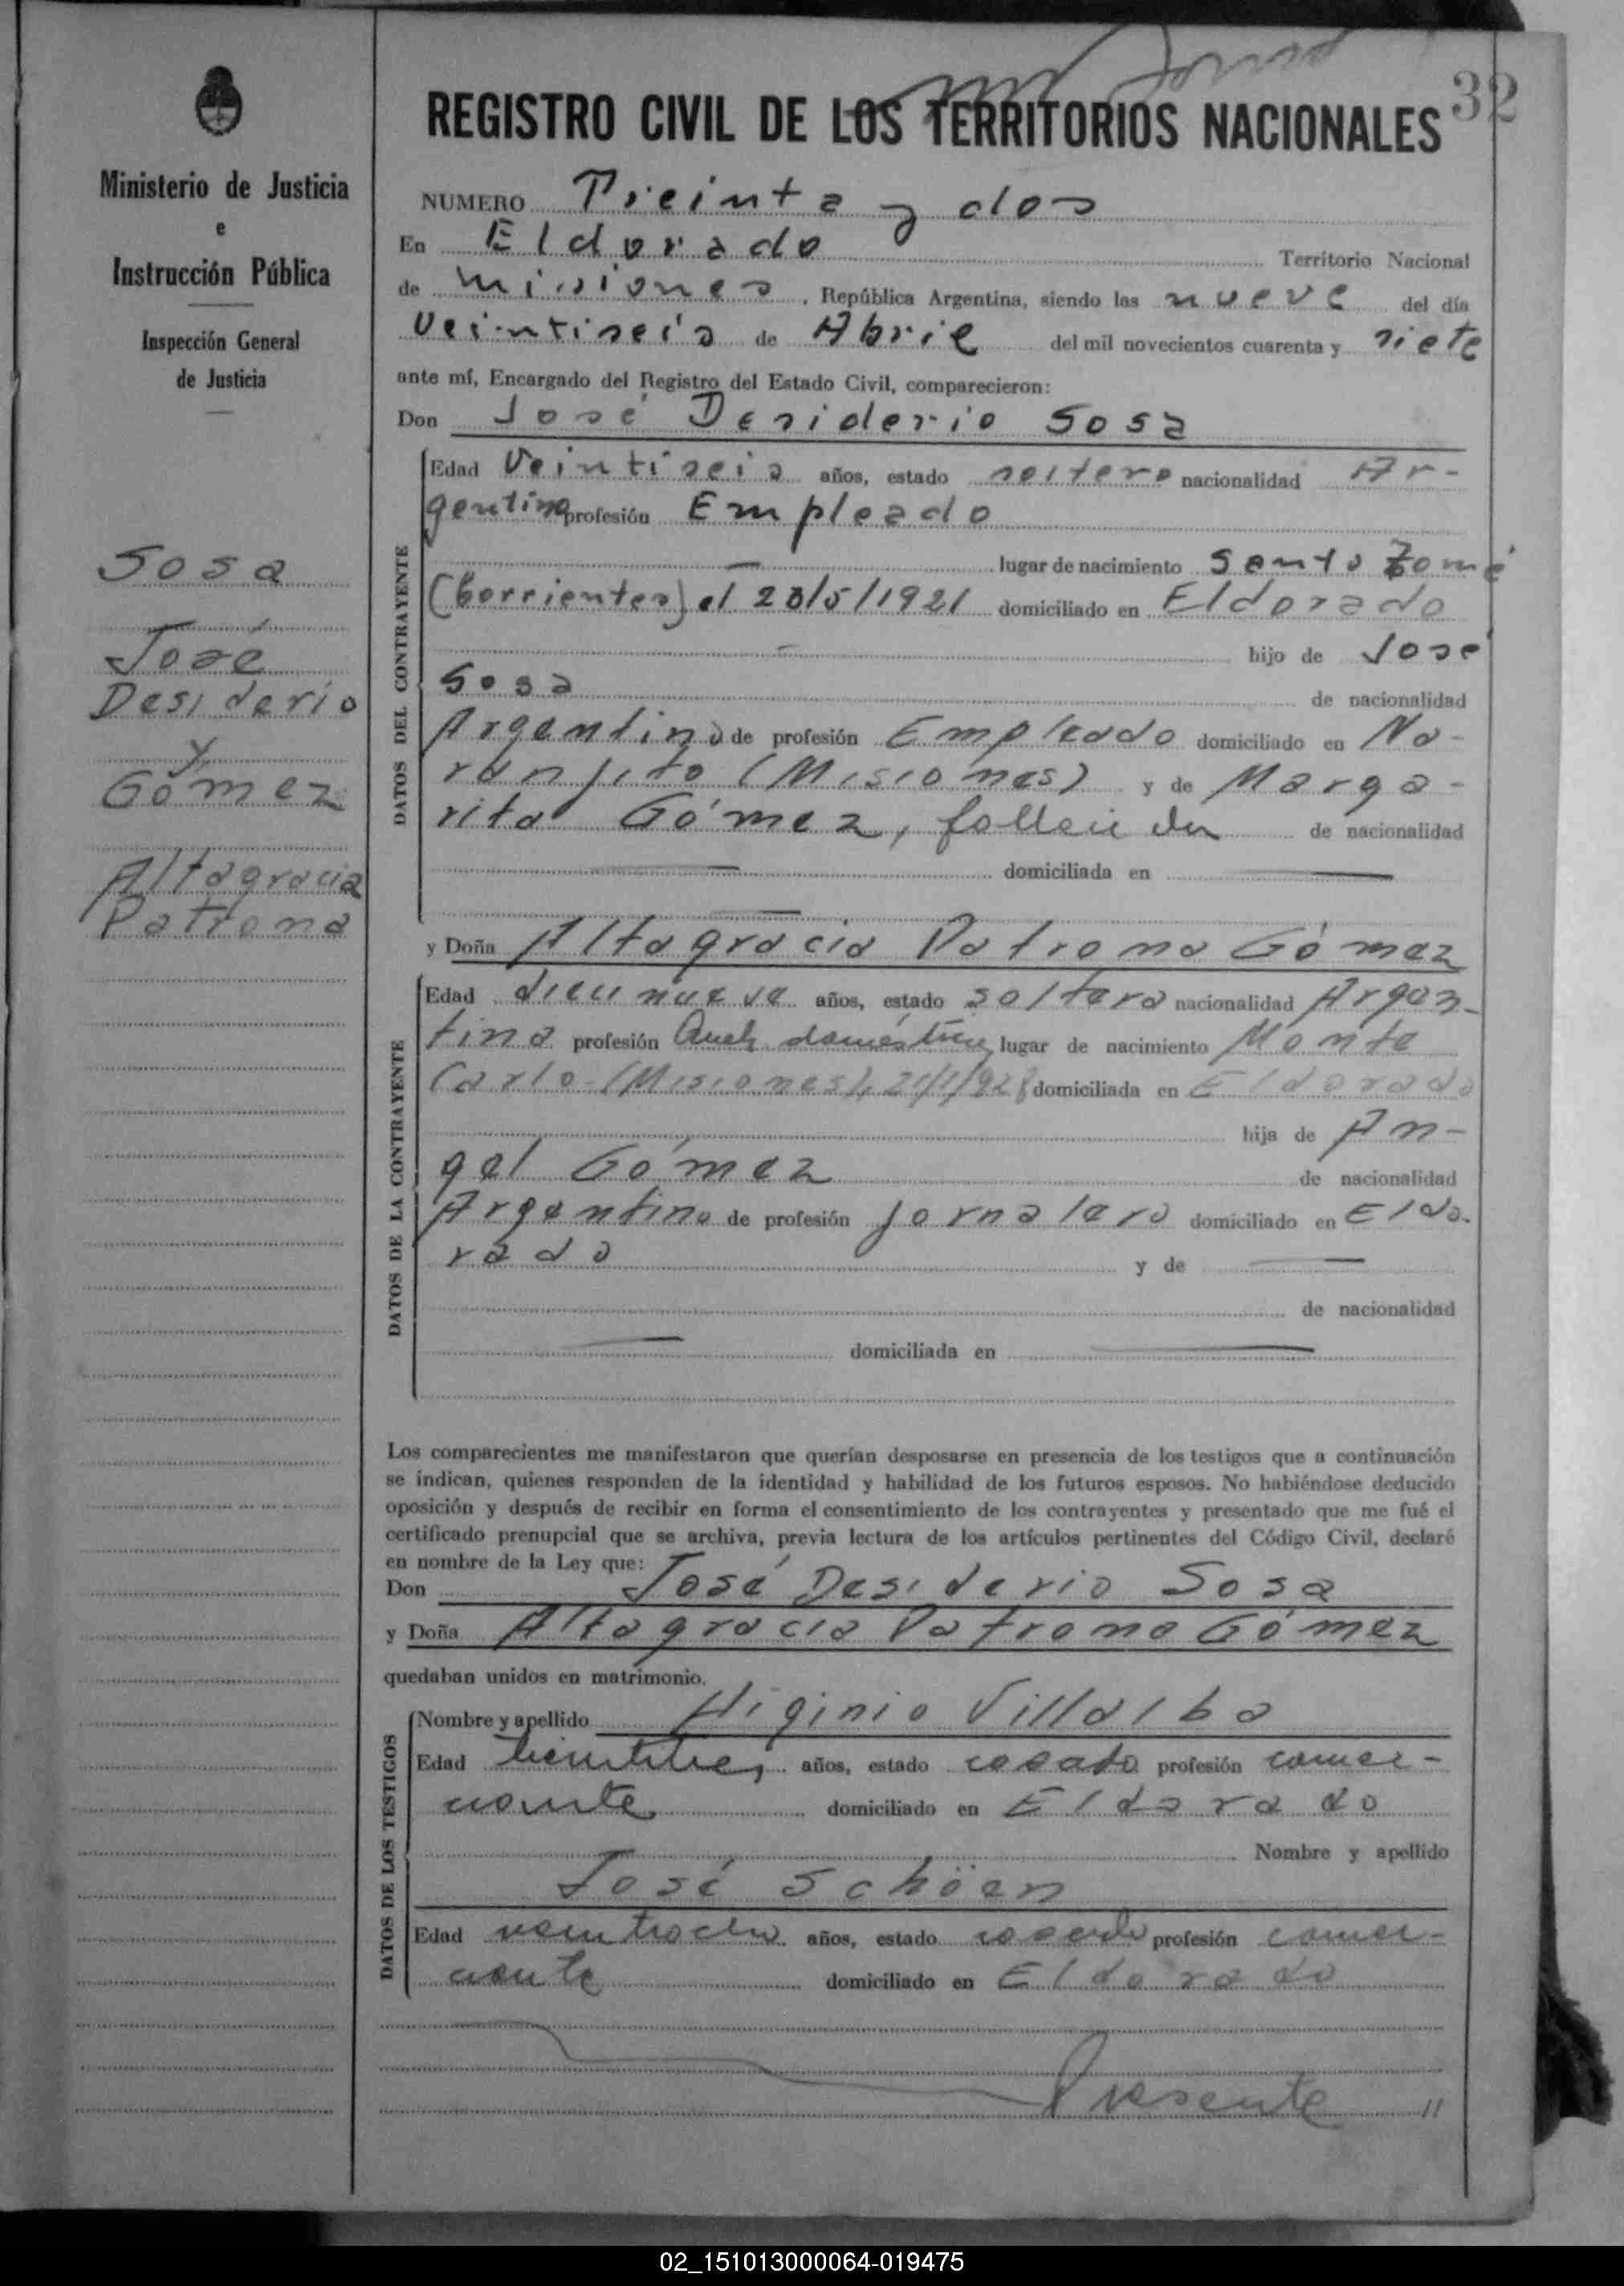 32
REGISTRO CIVIL DE LOS TERRITORIOS NACIONALES
Ministerio de Justicia
e
Instrucción Pública
Inspección General
de Justicia
Sosa
José
Desiderio
y
Gómez
Altagracia
Patrona
NUMERO Treinta y dos
En Eldorado Territorio Nacional
de Misiones, República Argentina, siendo las nueve del día
Veintiseis de Abril del mil novecientos cuarenta y siete
ante mí, Encargado del Registro del Estado Civil, comparecieron:
Don José Desiderio Sosa
DATOS DEL CONTRAYENTE
Edad Veintiseis años, estado soltero nacionalidad Ar-
gentina profesión Empleado
lugar de nacimiento Santo Tomé
(Corrientes) el 23/5/1921 domiciliado en Eldorado
hijo de José
Sosa de nacionalidad
Argentino de profesión Empleado domiciliado en Na-
ranjito (Misiones) y de Marga-
rita Gómez, fallecida de nacionalidad
domiciliada en
y Doña Altagracia Patrona Gómez
DATOS DE LA CONTRAYENTE
Edad diecinueve años, estado soltera nacionalidad Argen-
tina profesión Queh. domésticos lugar de nacimiento Monte
Carlo (Misiones), 21/1/928 domiciliada en Eldorado
hija de An-
gel Gómez de nacionalidad
Argentino de profesión jornalero domiciliado en Eldo-
rado y de
de nacionalidad
domiciliada en
Los comparecientes me manifestaron que querían desposarse en presencia de los testigos que a continuación
se indican, quienes responden de la identidad y habilidad de los futuros esposos. No habiéndose deducido
oposición y después de recibir en forma el consentimiento de los contrayentes y presentado que me fué el
certificado prenupcial que se archiva, previa lectura de los artículos pertinentes del Código Civil, declaré
en nombre de la Ley que:
Don José Desiderio Sosa
y Doña Altagracia Patrona Gómez
quedaban unidos en matrimonio.
DATOS DE LOS TESTIGOS
Nombre y apellido Higinio Villalba
Edad años, estado casado profesión comer-
ciante domiciliado en Eldorado
Nombre y apellido
José Schöen
Edad veintiocho años, estado casado profesión comer-
ciante domiciliado en Eldorado
Presente //
02_151013000064-019475